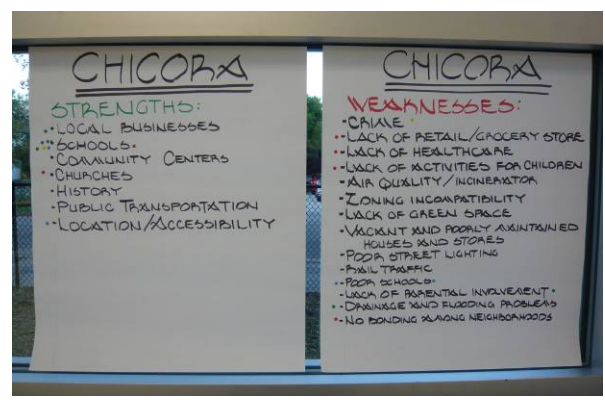 CHICORA
STRENGTHS:
- LOCAL BUSINESSES
- SCHOOLS
- COMMUNITY CENTERS
- CHURCHES
- HISTORY
- PUBLIC TRANSPORTATION
- LOCATION/ACCESSIBILITY
CHICORA
WEAKNESSES:
- CRIME
- LACK OF RETAIL/GROCERY STORE
- LACK OF HEALTHCARE
- LACK OF ACTIVITIES FOR CHILDREN
- AIR QUALITY/INCINERATOR
- ZONING INCOMPATIBILITY
- LACK OF GREEN SPACE
- VACANT AND POORLY MAINTAINED
HOUSES AND STORES
- POOR STREET LIGHTING
- RAIL TRAFFIC
- POOR SCHOOLS
- LACK OF PARENTAL INVOLVEMENT
- DRAINAGE AND FLOODING PROBLEMS
- NO BONDING AMONG NEIGHBORHOODS